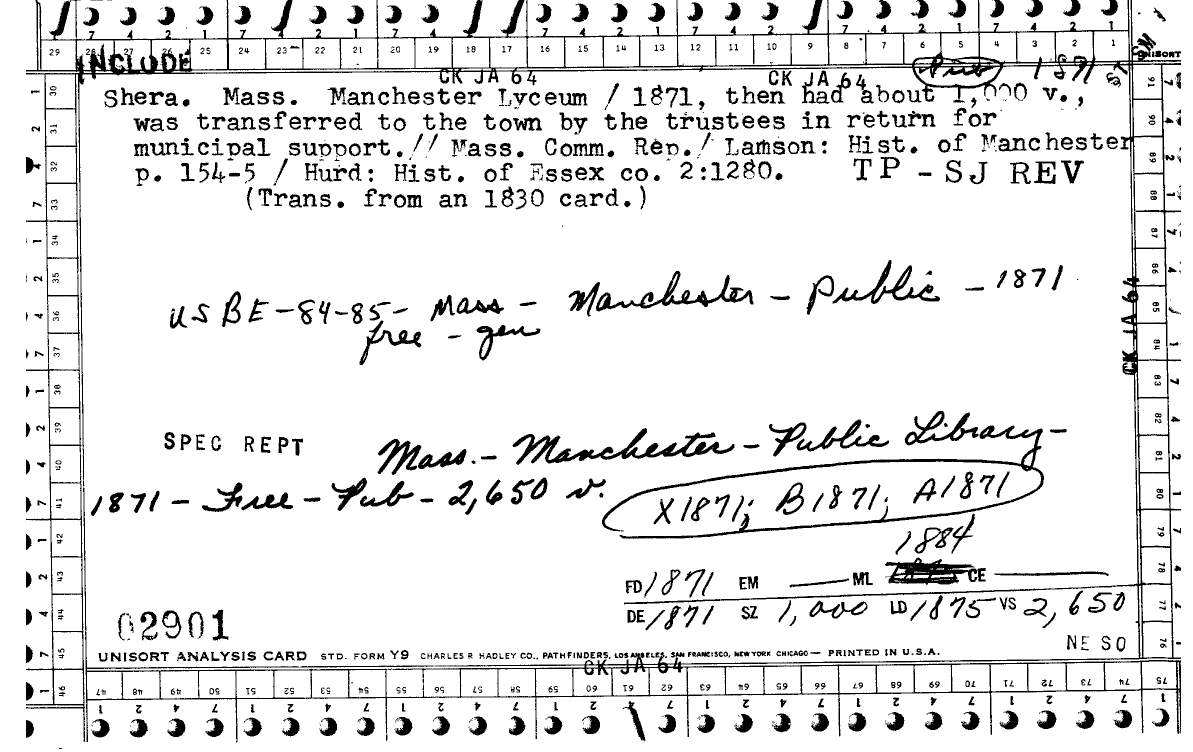 7 4 2 1 7 4 2 1 7 4 2 1 7 4 2 1
29 28 27 26 25 24 23 22 21 20 19 18 17 16 15 14 13 12 11 10 9 8 7 6 5 4 3 2 1 UNISORT
INCLUDE CK JA 64 CK JA 64 Pub 1871
Shera. Mass. Manchester Lyceum / 1871, then had about 1,000 v.,
was transferred to the town by the trustees in return for
municipal support.// Mass. Comm. Rep./ Lamson: Hist. of Manchester
p. 154-5 / Hurd: Hist. of Essex co. 2:1280. TP - SJ REV
(Trans. from an 1830 card.)
US BE-84-85- Mass - Manchester - Public - 1871
free - gen
CK JA 64
SPEC REPT Mass. - Manchester - Public Library -
1871 - Free - Pub - 2,650 v.
X1871; B1871; A1871
1884
FD 1871 EM ML 1875 CE
DE 1871 SZ 1,000 LD 1875 VS 2,650
02901
NE SO
UNISORT ANALYSIS CARD STD. FORM Y9 CHARLES R HADLEY CO., PATHFINDERS, LOS ANGELES, SAN FRANCISCO, NEW YORK CHICAGO — PRINTED IN U.S.A.
CK JA 64
47 48 49 50 51 52 53 54 55 56 57 58 59 60 61 62 63 64 65 66 67 68 69 70 71 72 73 74 75